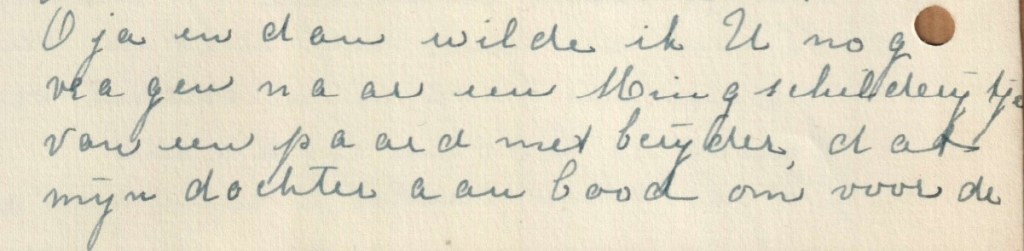 O ja en dan wilde ik U nog
vragen naar een Mingschilderijtje
van een paard met berijder, dat
mijn dochter aan bood om voor de